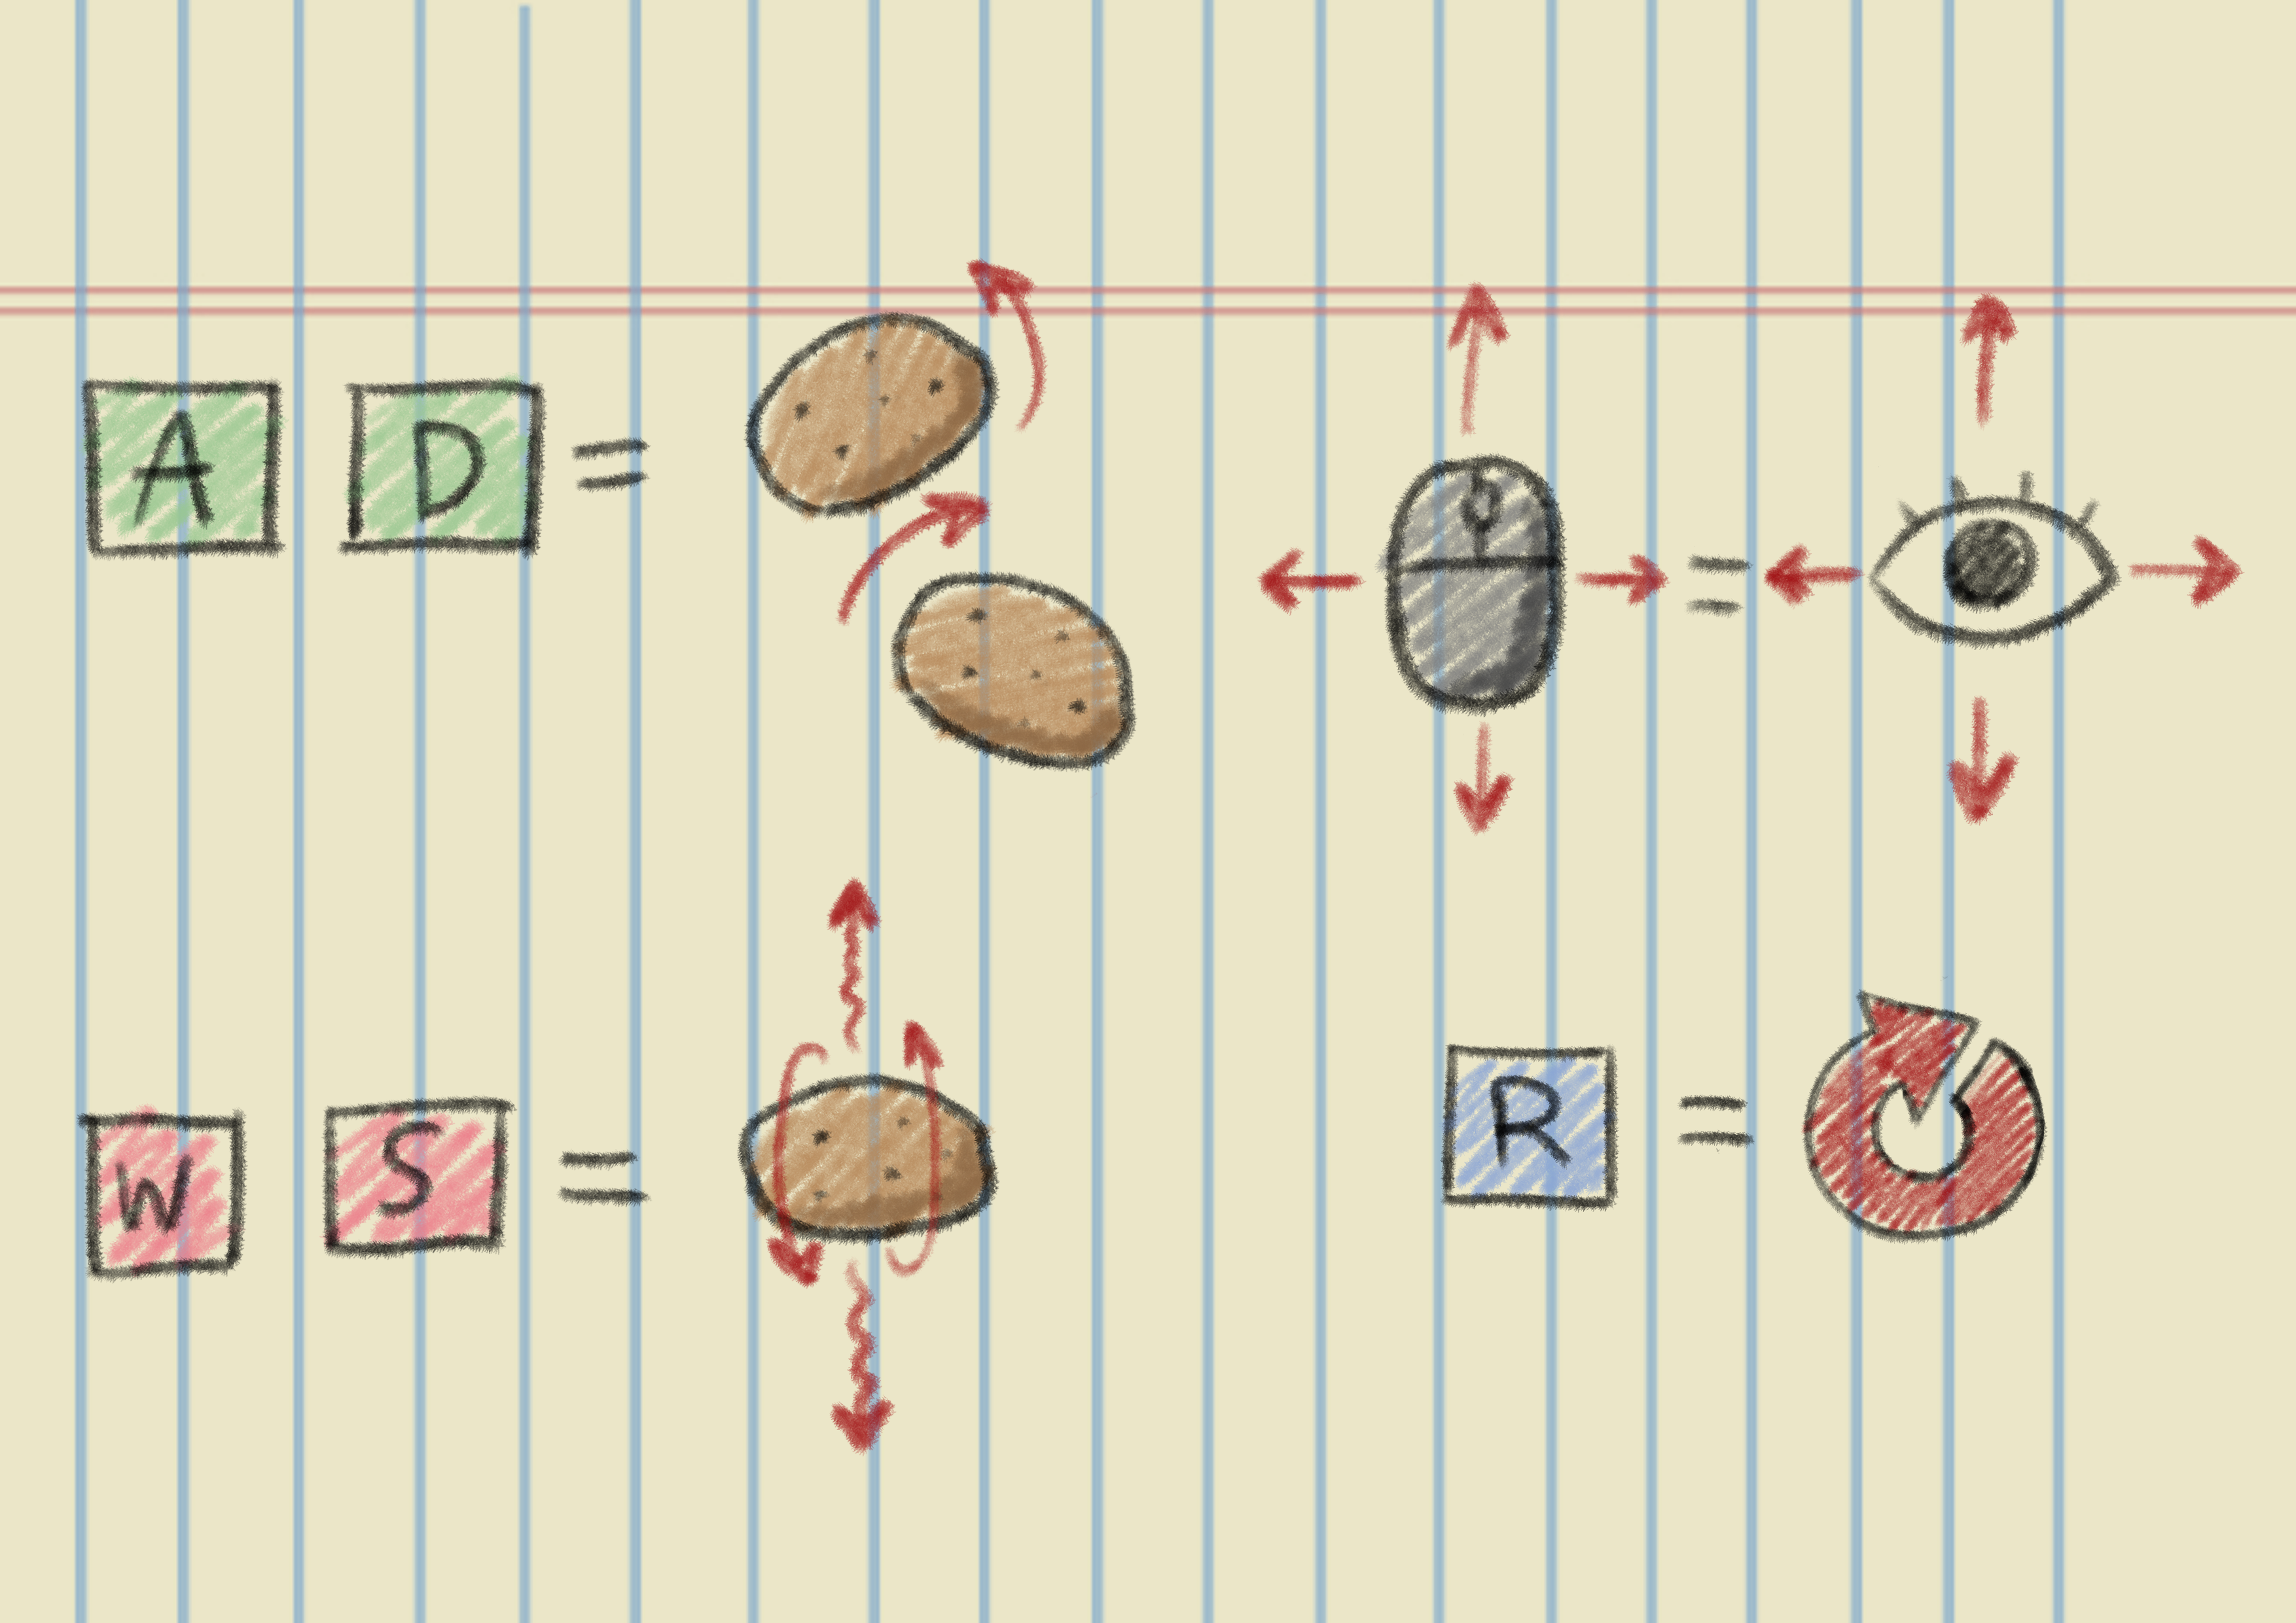 A D =
=
W S =
R =